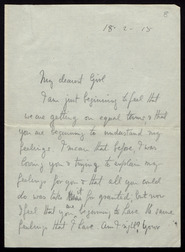 18. 2. 18
My dearest Girl
I am just beginning to feel that
we are getting on equal terms & that
you are beginning to understand my
feelings. I mean that before, I was
loving you & trying to explain my
feelings for you & that all you could
do was take them for granted, but now
I feel that you are beginning to have the same
feelings that I have. Am I right? Your